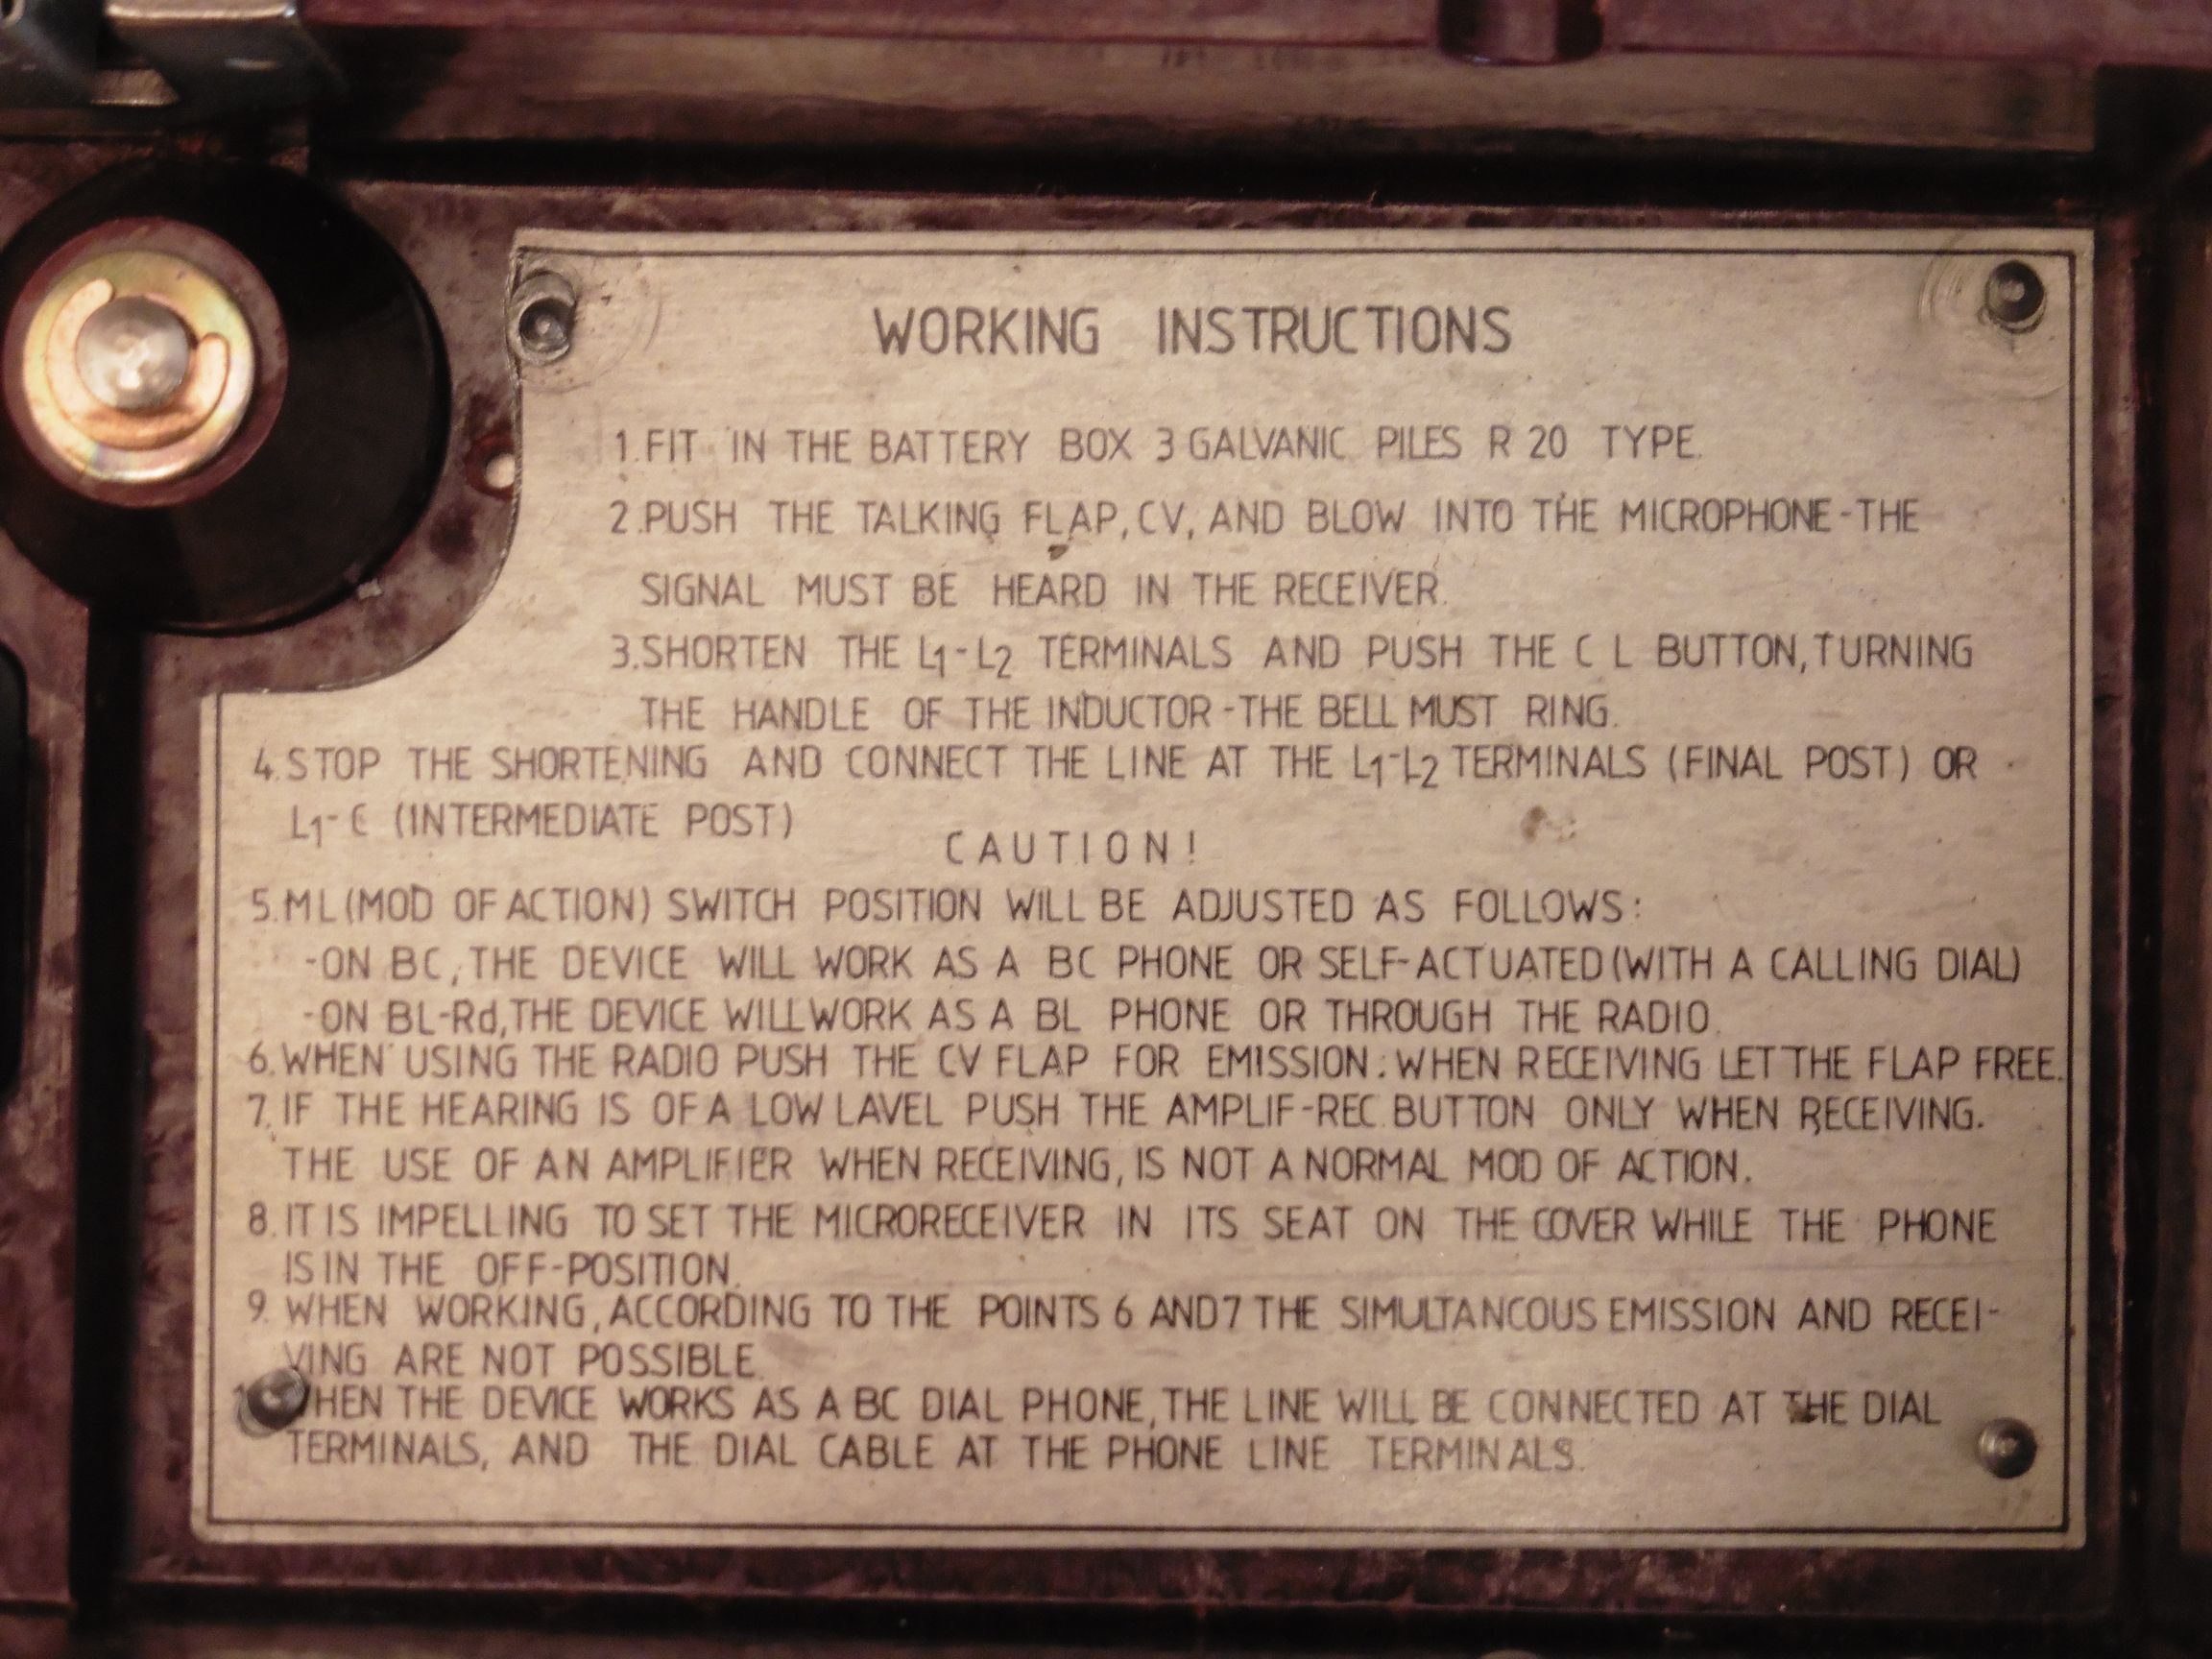 WORKING INSTRUCTIONS
1. FIT IN THE BATTERY BOX 3 GALVANIC PILES R 20 TYPE.
2. PUSH THE TALKING FLAP, CV, AND BLOW INTO THE MICROPHONE-THE
SIGNAL MUST BE HEARD IN THE RECEIVER.
3. SHORTEN THE L1-L2 TERMINALS AND PUSH THE C L BUTTON, TURNING
THE HANDLE OF THE INDUCTOR-THE BELL MUST RING.
4. STOP THE SHORTENING AND CONNECT THE LINE AT THE L1-L2 TERMINALS (FINAL POST) OR
L1- (INTERMEDIATE POST)
CAUTION!
5. ML (MOD OF ACTION) SWITCH POSITION WILL BE ADJUSTED AS FOLLOWS:
-ON BC, THE DEVICE WILL WORK AS A BC PHONE OR SELF-ACTUATED (WITH A CALLING DIAL)
-ON BL-Rd, THE DEVICE WILL WORK AS A BL PHONE OR THROUGH THE RADIO.
6. WHEN USING THE RADIO PUSH THE CV FLAP FOR EMISSION: WHEN RECEIVING LET THE FLAP FREE.
7. IF THE HEARING IS OF A LOW LAVEL PUSH THE AMPLIF-REC. BUTTON ONLY WHEN RECEIVING.
THE USE OF AN AMPLIFIER WHEN RECEIVING, IS NOT A NORMAL MOD OF ACTION.
8. IT IS IMPELLING TO SET THE MICRORECEIVER IN ITS SEAT ON THE COVER WHILE THE PHONE
IS IN THE OFF-POSITION.
9. WHEN WORKING, ACCORDING TO THE POINTS 6 AND 7 THE SIMULTANCOUS EMISSION AND RECEI-
VING ARE NOT POSSIBLE.
WHEN THE DEVICE WORKS AS A BC DIAL PHONE, THE LINE WILL BE CONNECTED AT THE DIAL
TERMINALS, AND THE DIAL CABLE AT THE PHONE LINE TERMINALS.